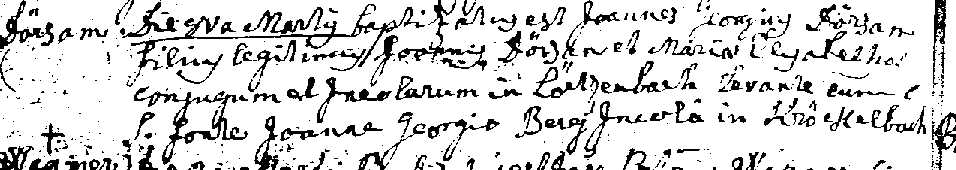 Dörsam Die 9va Martij baptizatus est Joannes Georgius Dörsam
filius legitimus Joannis Dörsam et Maria Elisabetha
conjugum et Incolarum in Lörzenbach levante eum e
s. fonte Joanne Georgio Berg Incola in Kröckelbach
Wagner